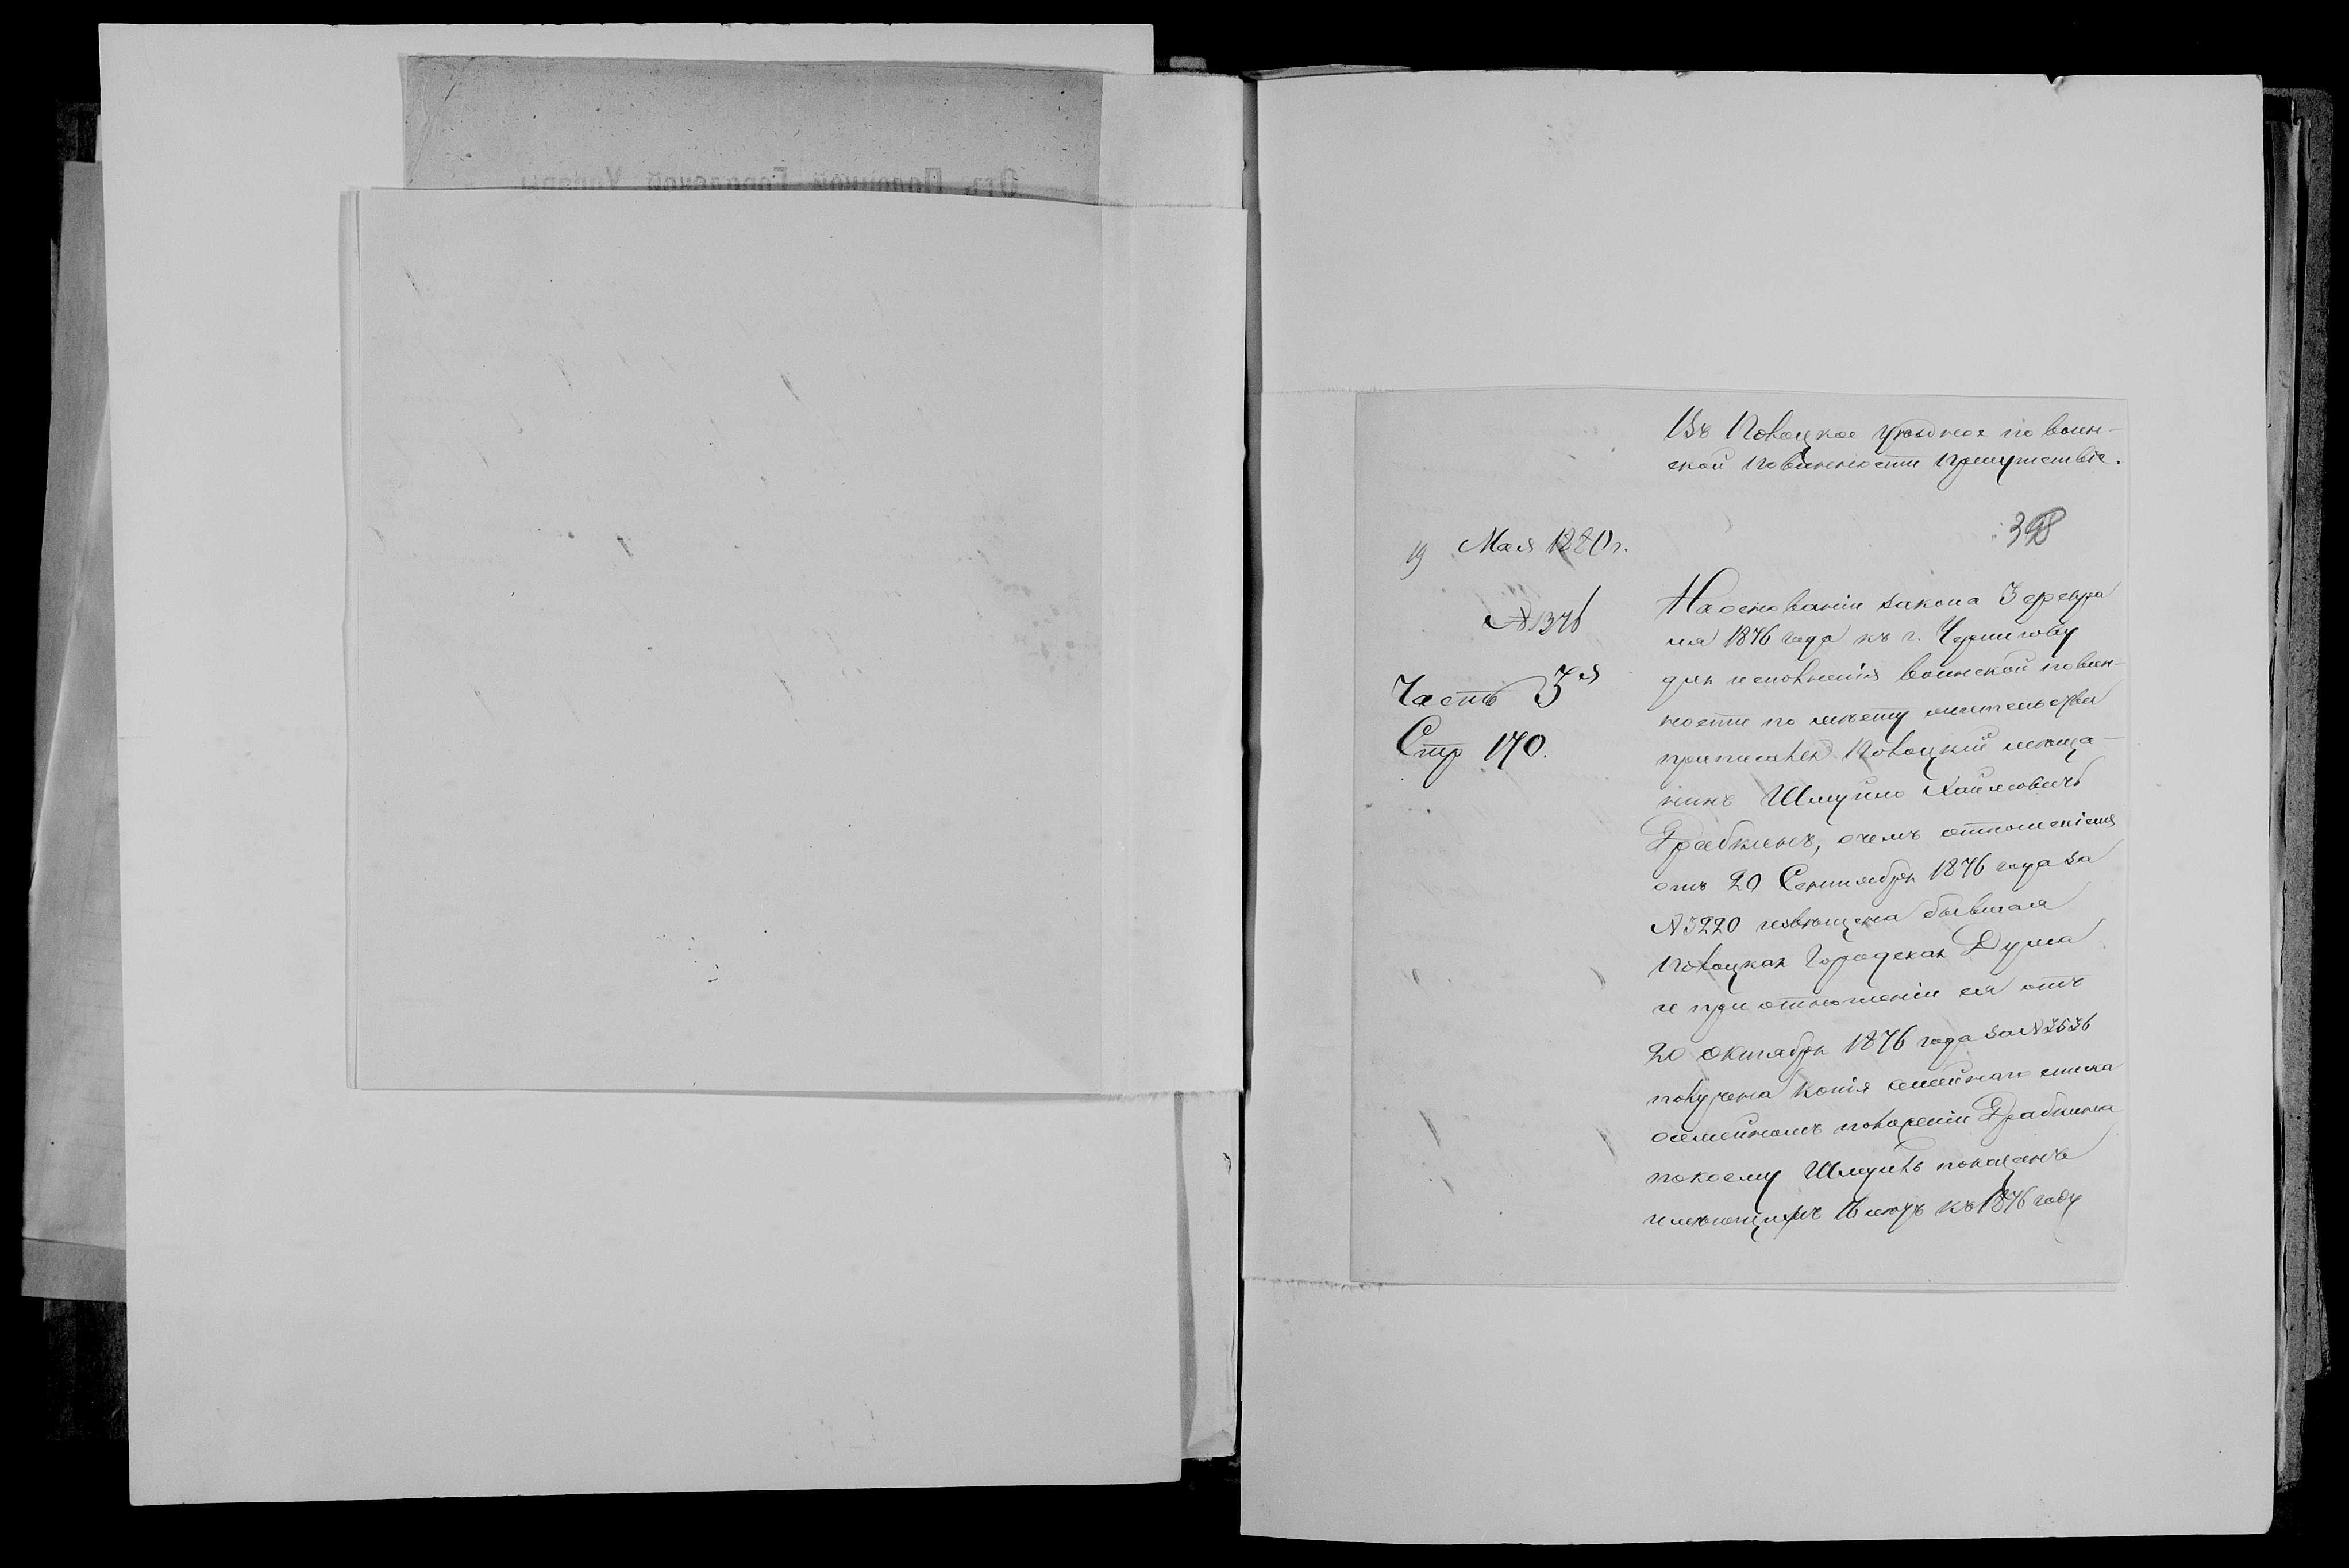 Отъ Полоцкой Городской Управы
Въ Полоцкое уѣздное по воин-
ской повинности присутствіе.
398
19 Мая 1880 г.
№ 1376
Часть 3я
Стр 170.
На основаніи закона 3 февра
ля 1876 года къ г. Чернигову
для исполненія воинской повин-
ности по мѣсту жительства
приписался Полоцкій мѣща-
нинъ Шмуйло Хаимовичъ
Драбкинъ, о чемъ отношеніемъ
отъ 20 Сентября 1876 года за
№ 3220 извѣщена бывшая
Полоцкая Городская Дума
и при отношеніи ея отъ
20 Октября 1876 года за № 3536
получена копія семейнаго списка
о семейномъ положеніи Драбкина
по коему Шмуйло показанъ
имѣющимъ 16 лѣтъ къ 1876 году